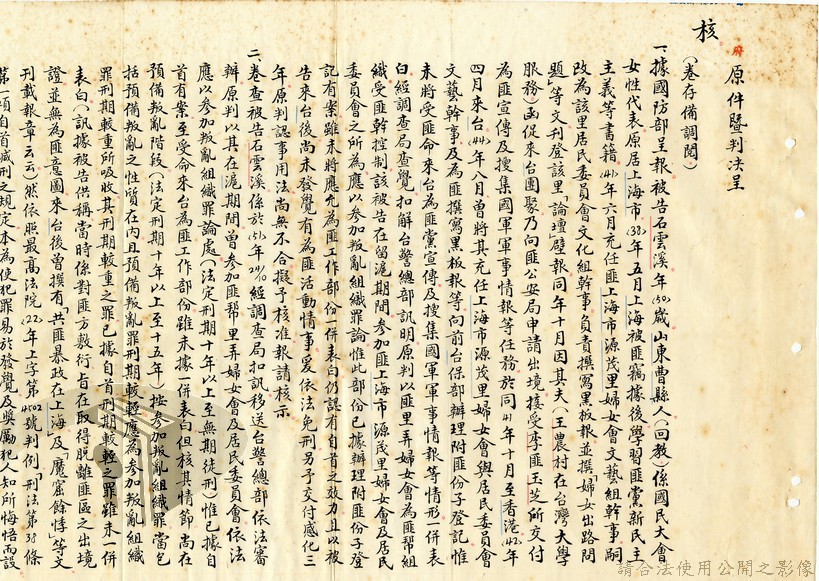 核
原件暨判決呈
(卷存備調閱)
一、據國防部呈報被告石雲溪年(50)歲山東曹縣人(回教)係國民大會
女性代表原居上海市(38)年五月上海被匪竊據後學習匪黨新民主
主義等書籍(41)年六月充任匪上海市源茂里婦女會文藝組幹事嗣
改為該里居民委員會文化組幹事負責撰寫黑板報並撰「婦女出路問
題」等文刊登該里「論壇」壁報同年十月因其夫(王農村在台灣大學
服務)函促來台團聚乃向匪公安局申請出境接受李匪玉芝所交付
為匪宣傳及搜集國軍軍事情報等任務於同(41)年十月至香港(42)年
四月來台(44)年八月曾將其充任上海市源茂里婦女會與居民委員會
文藝幹事及為匪撰寫黑板報等向前台保部辦理附匪份子登記惟
未將受匪命來台為匪黨宣傳及搜集國軍軍事情報等情形一併表
白經調查局查覺扣解台警總部訊明原判以匪里弄婦女會為匪幫組
織受匪幹控制該被告在留滬期間參加匪上海市源茂里婦女會及居民
委員會之所為應以參加叛亂組織罪論惟此部份已據辦理附匪份子登
記有案雖未將應允為匪工作部份一併表白仍認有自首之效力且以被
告來台後尚未發覺有為匪活動情事爰依法免刑另予交付感化三
年原判認事用法尚無不合擬予核准報請核示
二、卷查被告石雲溪係於(51)年29/10經調查局扣訊移送台警總部依法審
辦原判以其在滬期間曾參加匪幫里弄婦女會及居民委員會依法
應以參加叛亂組織罪論處(法定刑期十年以上至無期徒刑)惟已據自
首有案至受命來台為匪工作部份雖未據一併表白但核其情節尚在
預備叛亂階段(法定刑期十年以上至十五年)按參加叛亂組織罪當包
括預備叛亂之性質在內且預備叛亂罪刑期較輕應為參加叛亂組織
罪刑期較重所吸收其刑期較重之罪已據自首刑期較輕之罪雖未一併
表白(訊據被告供稱當時係對匪方敷衍旨在取得脫離匪區之出境
證並無為匪意圖來台後曾撰有「共匪暴政在上海」及「魔窟餘悸」等文
刊載報章云云)然依照最高法院(22)年上字第4502號判例刑法第38條
第一項自首減刑之規定本為使犯罪易於發覺及獎勵犯人知所悔悟而設
請合法使用公開之影像